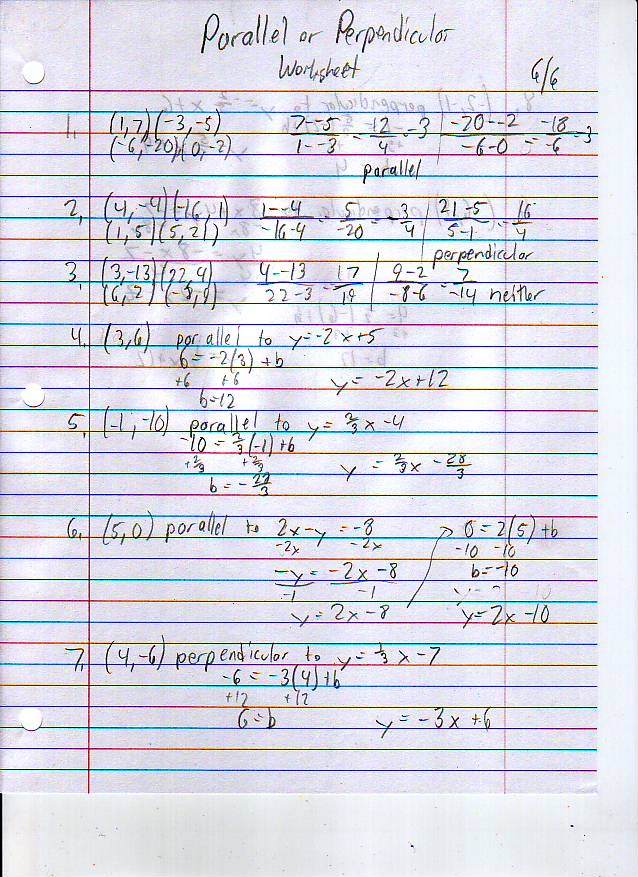 Parallel or Perpendicular
Worksheet
6/6
1. (1,7)(-3,-5) 7--5/1--3 = 12/4 = 3 | -20--2/-6-0 = -18/-6 = 3
(-6,-20)(0,-2)
parallel
2. (4,-4)(-16,1) 1--4/-16-4 = 5/-20 = -3/4 | 21-5/5-1 = 16/4
(1,5)(5,21)
perpendicular
3. (3,-13)(22,4) 4--13/22-3 = 17/19 | 9-2/-8-6 = 7/-14 neither
(6,2)(-8,9)
4. (3,6) parallel to y=-2x+5
6=-2(3)+b
+6 +6
b=12
y=-2x+12
5. (-1,-10) parallel to y=2/3x-4
-10=2/3(-1)+b
+2/3 +2/3
b=-28/3
y=2/3x-28/3
6. (5,0) parallel to 2x-y=-8 → 0=2(5)+b
-2x -2x -10 -10
-y=-2x-8 b=-10
-1 -1
y=2x-8 y=2x-10
7. (4,-6) perpendicular to y=1/3x-7
-6=-3(4)+b
+12 +12
6=b y=-3x+6